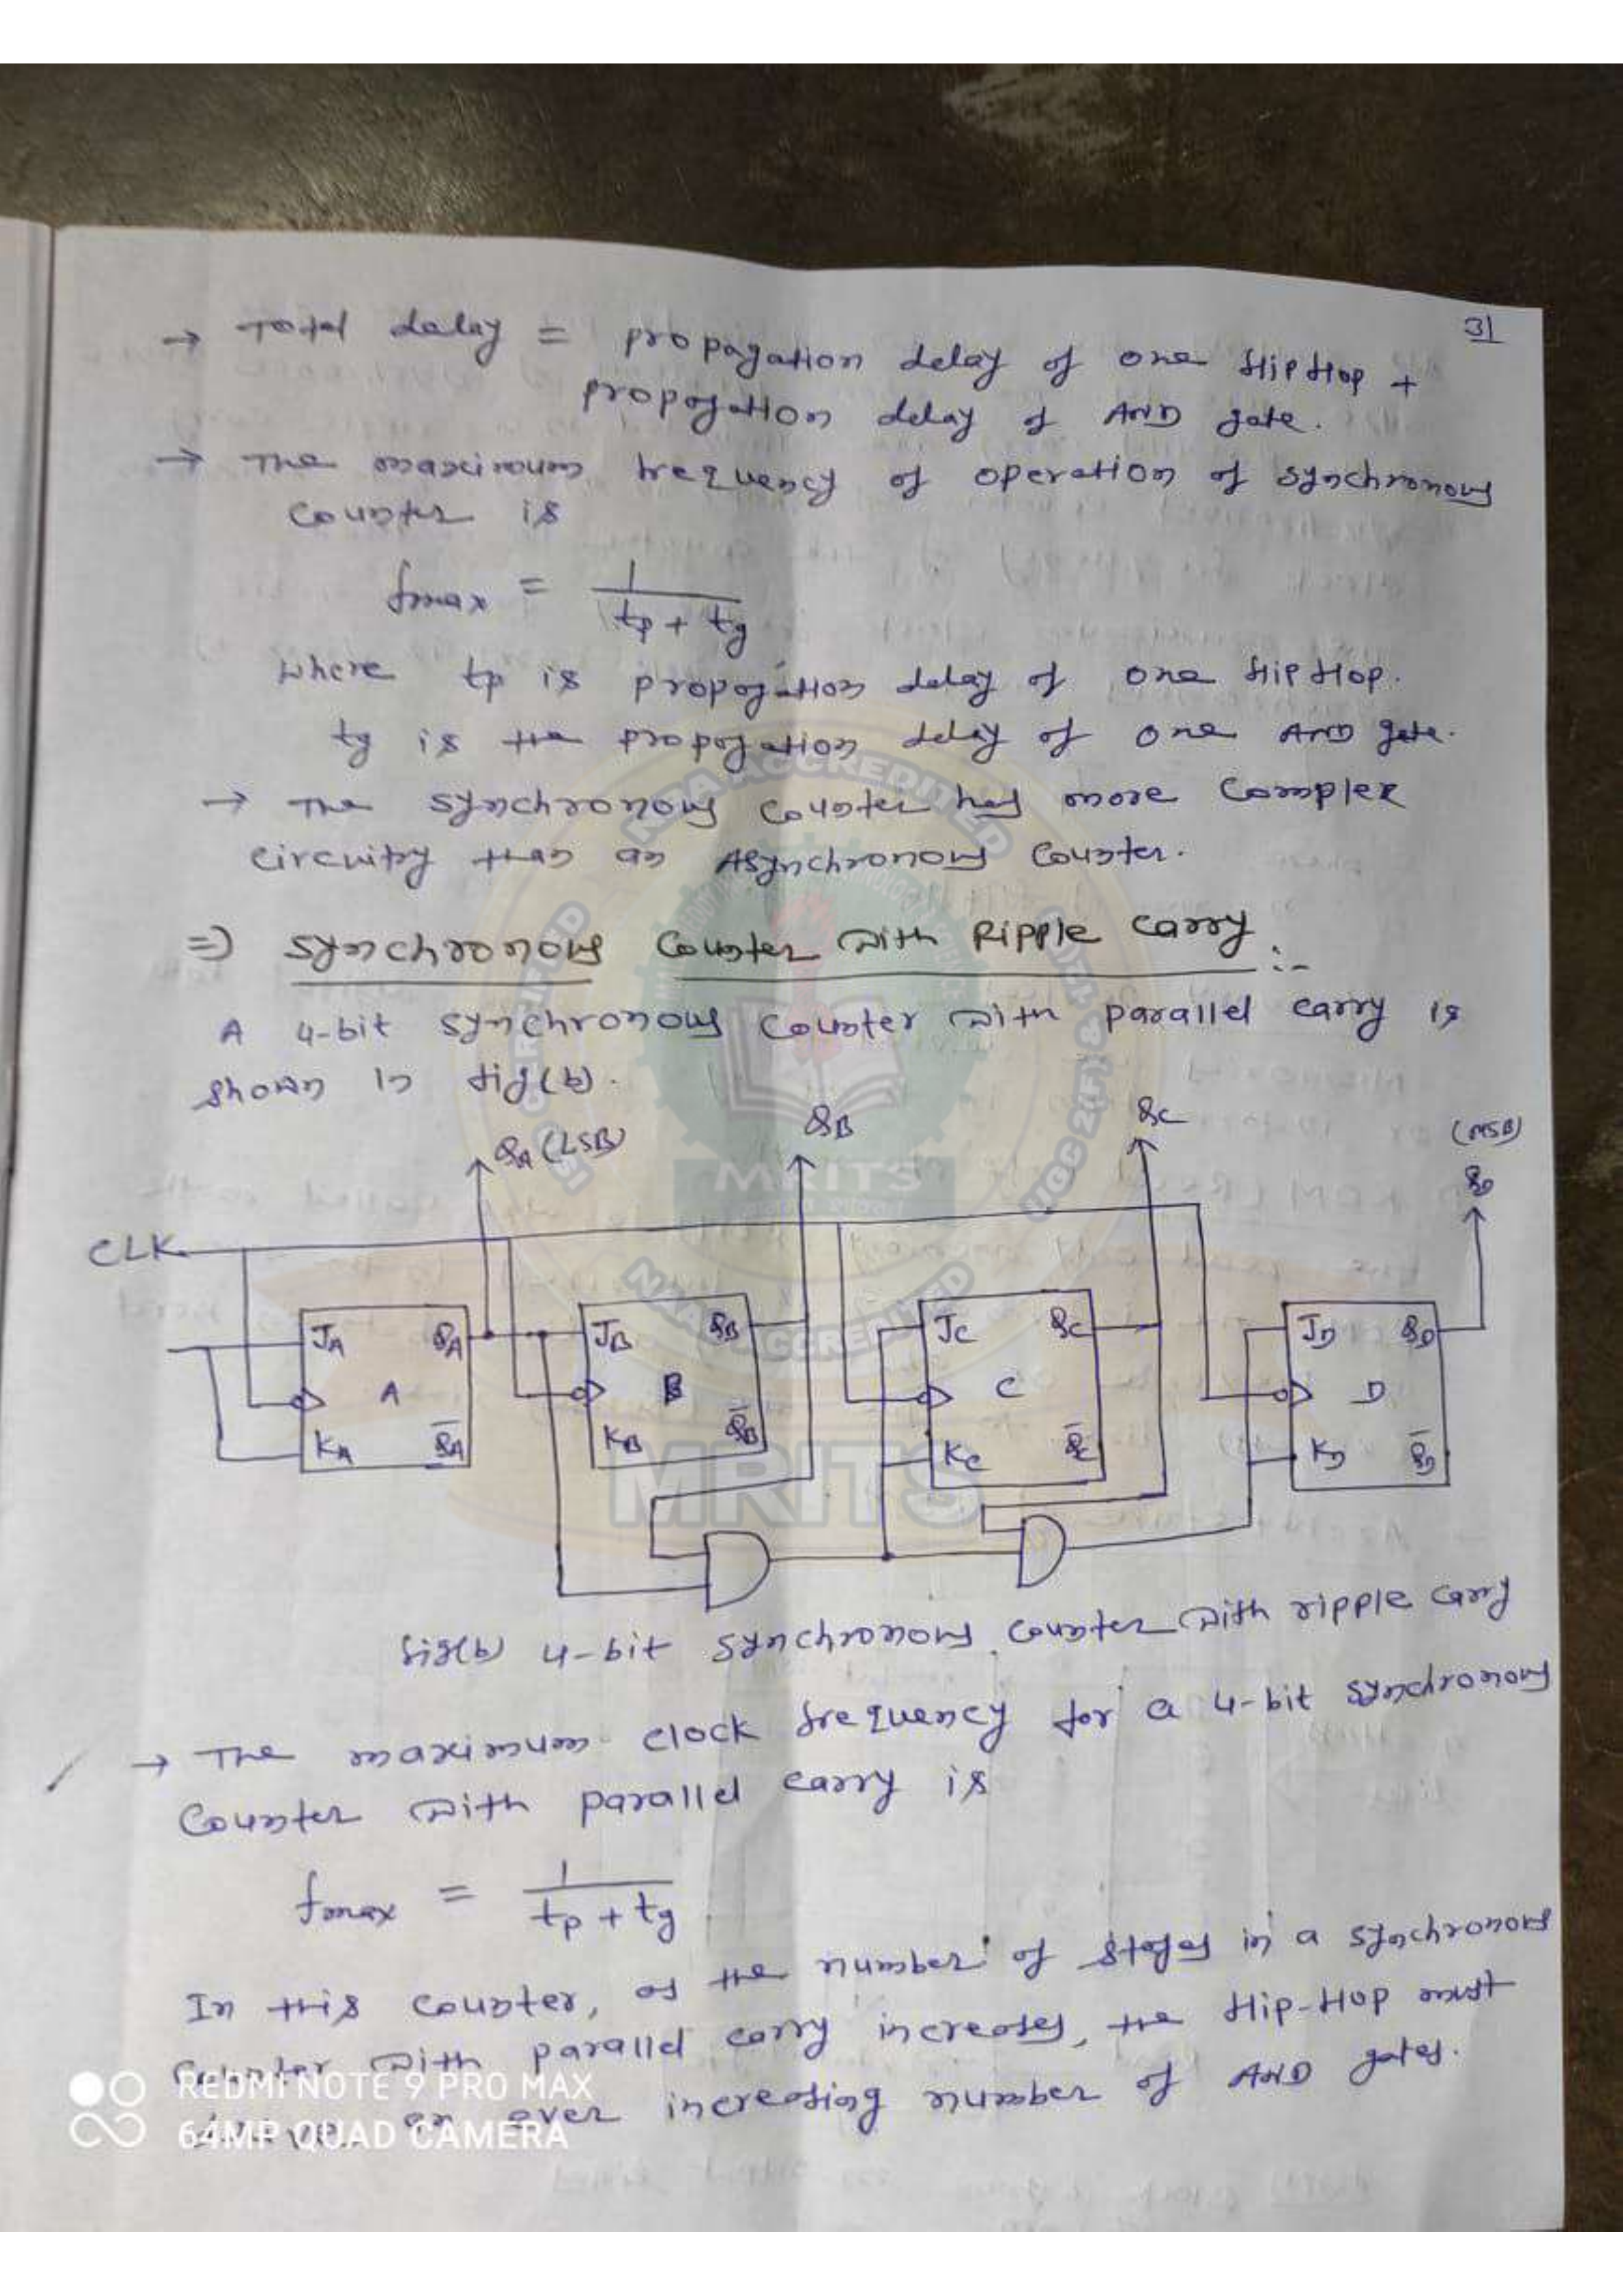 31
→ Total delay = propagation delay of one flipflop +
propogation delay of AND gate.
→ The maximum frequency of operation of synchronous
counter is
fmax = 1 / (tp + tg)
where tp is propogation delay of one flipflop.
tg is the propogation delay of one AND gate.
→ The synchronous counter has more complex
circuitry than an Asynchronous counter.
⇒ Synchronous Counter with Ripple Carry :-
A 4-bit synchronous counter with parallel carry is
shown in fig(b).
QA (LSB) QB QC (MSB)
QD
CLK
JA QA JB QB JC QC JD QD
A B C D
KA Q̅A KB Q̅B KC Q̅C KD Q̅D
fig(b) 4-bit synchronous counter with ripple carry
→ The maximum clock frequency for a 4-bit synchronous
Counter with parallel carry is
fmax = 1 / (tp + tg)
In this counter, as the number of stages in a synchronous
counter with parallel carry increases, the flip-flop must
an ever increasing number of AND gates.
REDMI NOTE 9 PRO MAX
64MP QUAD CAMERA
NBA ACCREDITED
NAAC ACCREDITED
UGC 2(F)
MRITS
MRITS